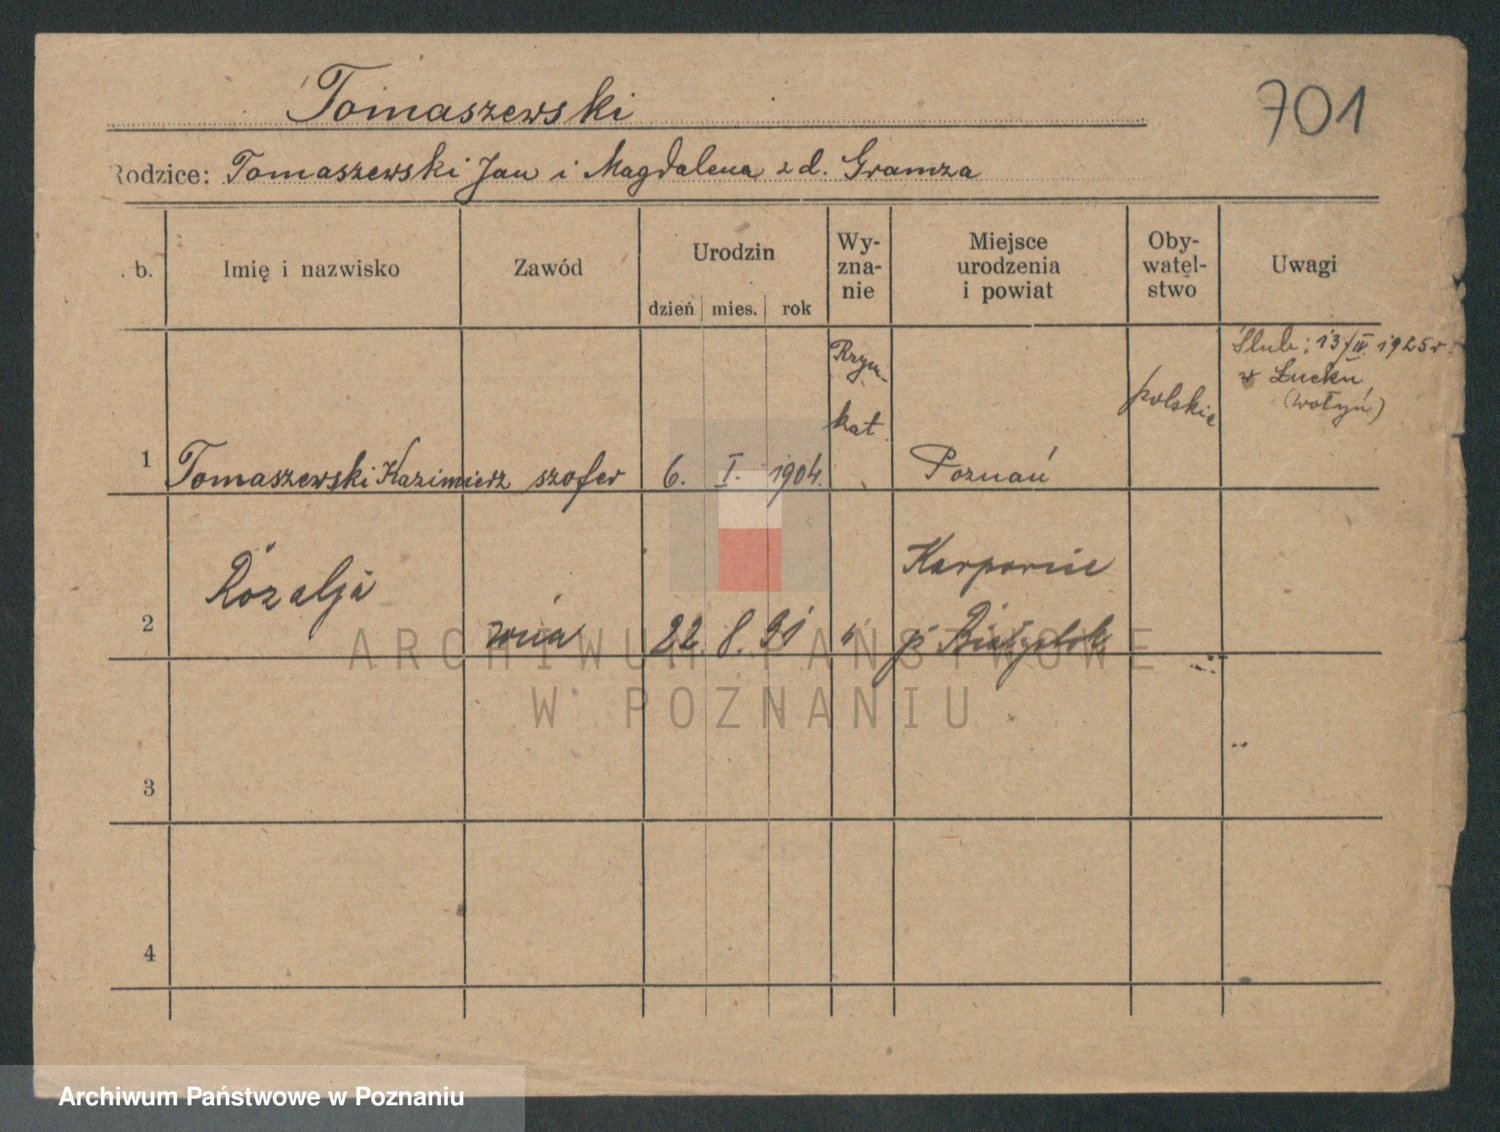 Tomaszewski
701
Rodzice: Tomaszewski Jan i Magdalena z d. Gramza
. b.
Imię i nazwisko
Zawód
Urodzin
dzień mies. rok
Wy-
zna-
nie
Miejsce
urodzenia
i powiat
Oby-
watel-
stwo
Uwagi
1
Tomaszewski Kazimierz
szofer
6. I. 1904.
Rzym.
kat.
Poznań
polskie
Ślub: 13/IV. 1925 r.
w Łucku
(Wołyń)
2
Rozalja
22. 8. 91
"
p. Białystok
3
4
ARCHIWUM PAŃSTWOWE
W POZNANIU
Archiwum Państwowe w Poznaniu